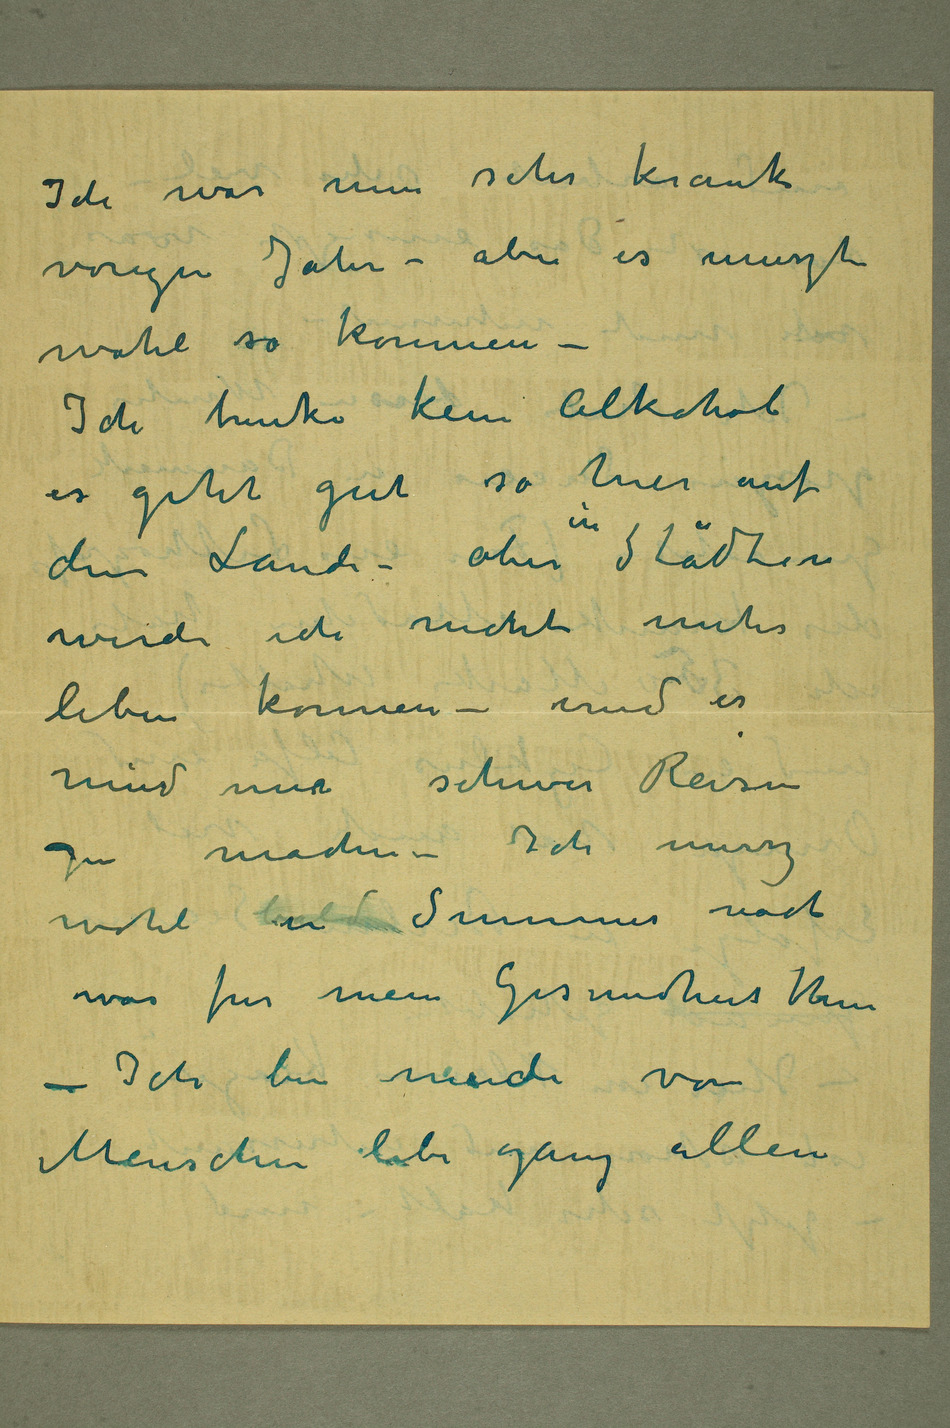 Ich war nun sehr krank
vorigen Jahr – aber es muszte
wohl so kommen –
Ich trinke kein Alkohol
es geht gut so hier auf
dem Lande – aber in Städten
werde ich nicht mehr
leben können – und es
wird mir schwer Reisen
zu machen – Ich musz
wohl in Summer nocht
was für mein Gesundheit thun
– Ich bin müde von
Menschen lebe ganz allein